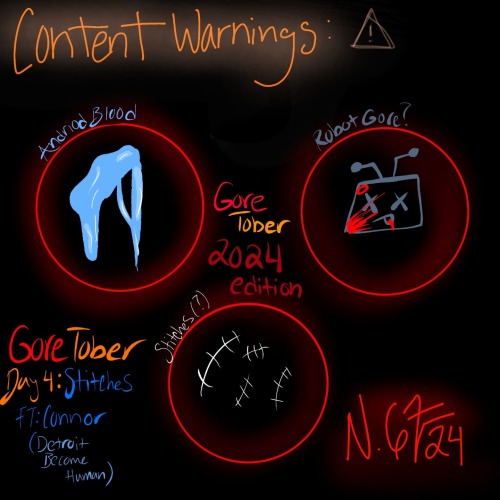 Content Warnings:
Andriod Blood
Robot Gore?
Gore
Tober
2024
edition
Stitches(?)
GoreTober
Day 4: Stitches
FT: Connor
(Detroit
Become
Human)